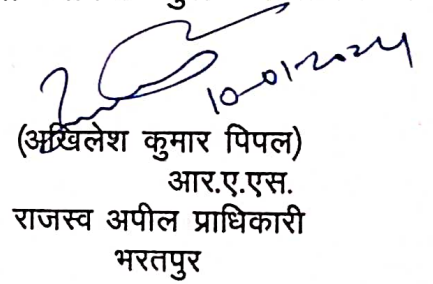 10-01-2024
(अखिलेश कुमार पिपल)
आर.ए.एस.
राजस्व अपील प्राधिकारी
भरतपुर